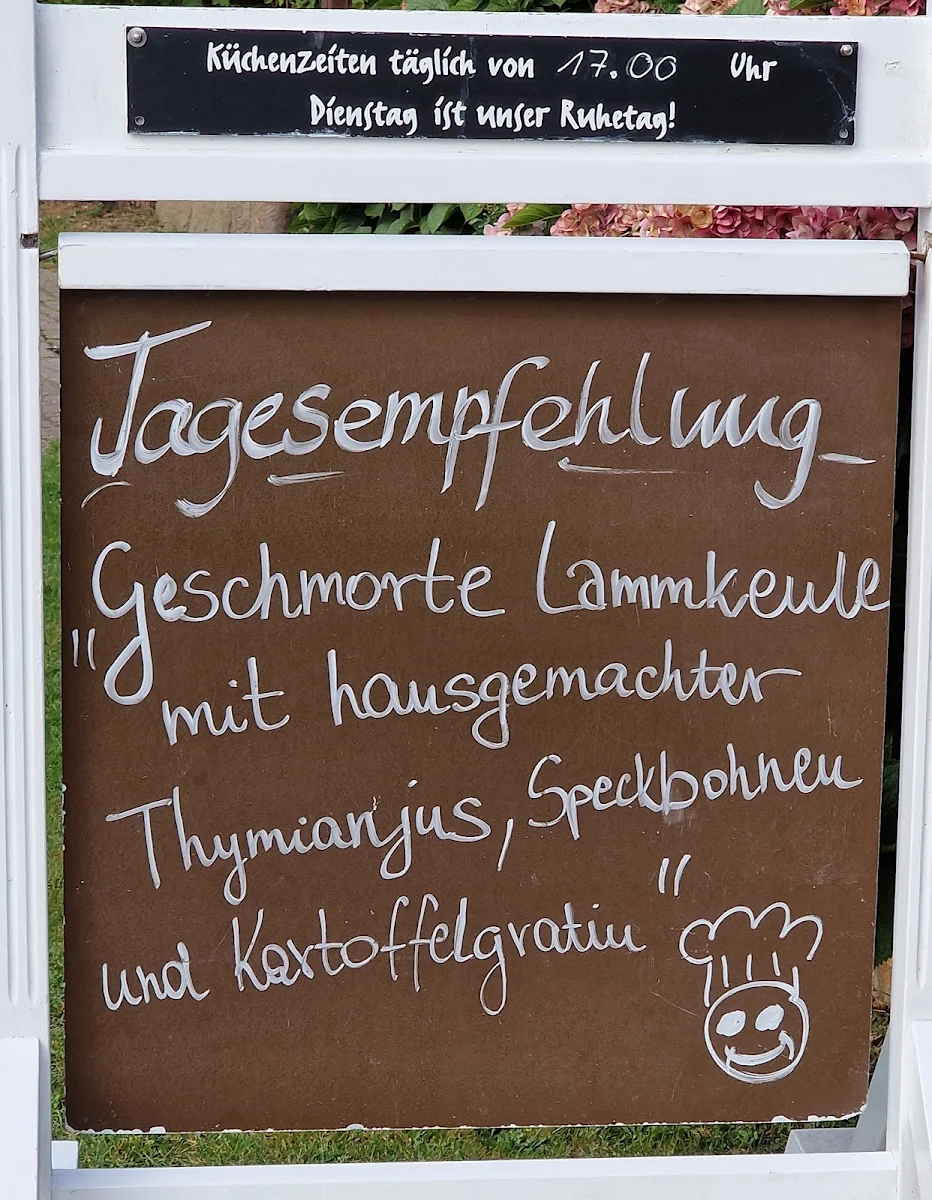 Küchenzeiten täglich von 17.00 Uhr
Dienstag ist unser Ruhetag!
Tagesempfehlung
"Geschmorte Lammkeule
mit hausgemachter
Thymianjus, Speckbohnen
und Kartoffelgratin"